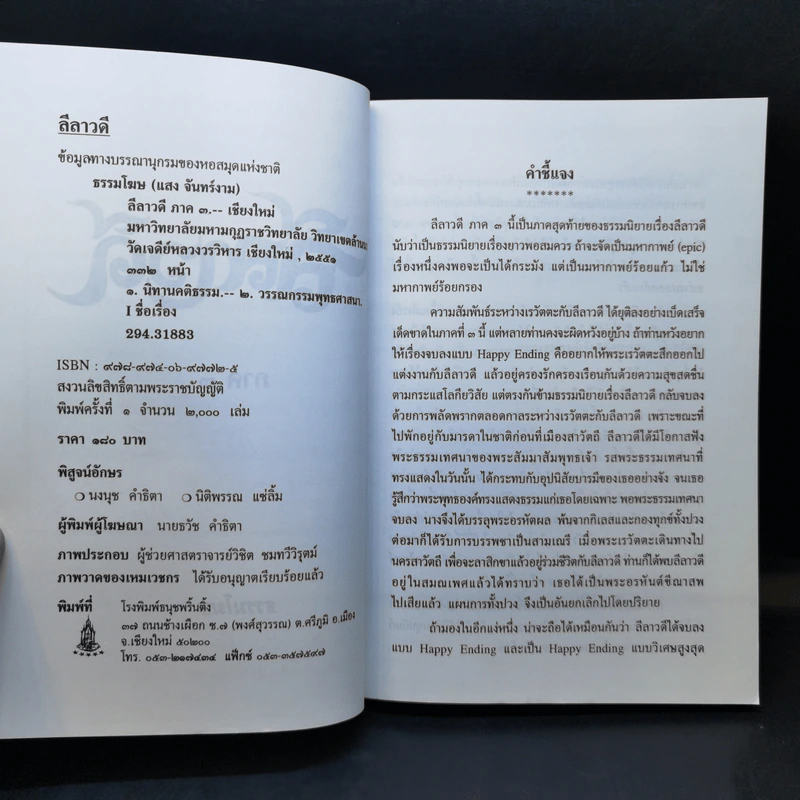 ลีลาวดี
ข้อมูลทางบรรณานุกรมของหอสมุดแห่งชาติ
ธรรมโฆษ (แสง จันทร์งาม)
ลีลาวดี ภาค ๓.-- เชียงใหม่
มหาวิทยาลัยมหามกุฏราชวิทยาลัย วิทยาเขตล้านนา
วัดเจดีย์หลวงวรวิหาร เชียงใหม่ , ๒๕๕๑
๓๓๒ หน้า
๑. นิทานคติธรรม.-- ๒. วรรณกรรมพุทธศาสนา.
I ชื่อเรื่อง
294.31883
ISBN : ๙๗๘-๙๗๔-๐๖-๙๗๗๒-๕
สงวนลิขสิทธิ์ตามพระราชบัญญัติ
พิมพ์ครั้งที่ ๑ จำนวน ๒,๐๐๐ เล่ม
ราคา ๑๘๐ บาท
พิสูจน์อักษร
❍ นงนุช คำธิตา ❍ นิติพรรณ แซ่ลิ้ม
ผู้พิมพ์ผู้โฆษณา นายธวัช คำธิตา
ภาพประกอบ ผู้ช่วยศาสตราจารย์วิชิต ชมทวีวิรุตม์
ภาพวาดของเหมเวชกร ได้รับอนุญาตเรียบร้อยแล้ว
พิมพ์ที่ โรงพิมพ์ธนุชพริ้นติ้ง
๓๗ ถนนช้างเผือก ซ.๗ (พงศ์สุวรรณ) ต.ศรีภูมิ อ.เมือง
จ.เชียงใหม่ ๕๐๒๐๐
โทร. ๐๕๓-๒๑๗๔๓๔ แฟ็กซ์ ๐๕๓-๓๕๗๕๙๗
คำชี้แจง
*******
ลีลาวดี ภาค ๓ นี้เป็นภาคสุดท้ายของธรรมนิยายเรื่องลีลาวดี
นับว่าเป็นธรรมนิยายเรื่องยาวพอสมควร ถ้าจะจัดเป็นมหากาพย์ (epic)
เรื่องหนึ่งคงพอจะเป็นได้กระมัง แต่เป็นมหากาพย์ร้อยแก้ว ไม่ใช่
มหากาพย์ร้อยกรอง
ความสัมพันธ์ระหว่างเรวัตตะกับลีลาวดี ได้ยุติลงอย่างเบ็ดเสร็จ
เด็ดขาดในภาคที่ ๓ นี้ แต่หลายท่านคงจะผิดหวังอยู่บ้าง ถ้าท่านหวังอยาก
ให้เรื่องจบลงแบบ Happy Ending คืออยากให้พระเรวัตตะสึกออกไป
แต่งงานกับลีลาวดี แล้วอยู่ครองรักครองเรือนกันด้วยความสุขสดชื่น
ตามกระแสโลกียวิสัย แต่ตรงกันข้ามธรรมนิยายเรื่องลีลาวดี กลับจบลง
ด้วยการพลัดพรากตลอดกาลระหว่างเรวัตตะกับลีลาวดี เพราะขณะที่
ไปพักอยู่กับมารดาในชาติก่อนที่เมืองสาวัตถี ลีลาวดีได้มีโอกาสฟัง
พระธรรมเทศนาของพระสัมมาสัมพุทธเจ้า รสพระธรรมเทศนาที่
ทรงแสดงในวันนั้น ได้กระทบกับอุปนิสัยบารมีของเธออย่างจัง จนเธอ
รู้สึกว่าพระพุทธองค์ทรงแสดงธรรมแก่เธอโดยเฉพาะ พอพระธรรมเทศนา
จบลง นางจึงได้บรรลุพระอรหัตผล พ้นจากกิเลสและกองทุกข์ทั้งปวง
ต่อมาก็ได้รับการบรรพชาเป็นสามเณรี เมื่อพระเรวัตตะเดินทางไป
นครสาวัตถี เพื่อจะลาสิกขาแล้วอยู่ร่วมชีวิตกับลีลาวดี ท่านก็ได้พบลีลาวดี
อยู่ในสมณเพศแล้วได้ทราบว่า เธอได้เป็นพระอรหันต์ขีณาสพ
ไปเสียแล้ว แผนการทั้งปวง จึงเป็นอันยกเลิกไปโดยปริยาย
ถ้ามองในอีกแง่หนึ่ง น่าจะถือได้เหมือนกันว่า ลีลาวดีได้จบลง
แบบ Happy Ending และเป็น Happy Ending แบบวิเศษสูงสุด